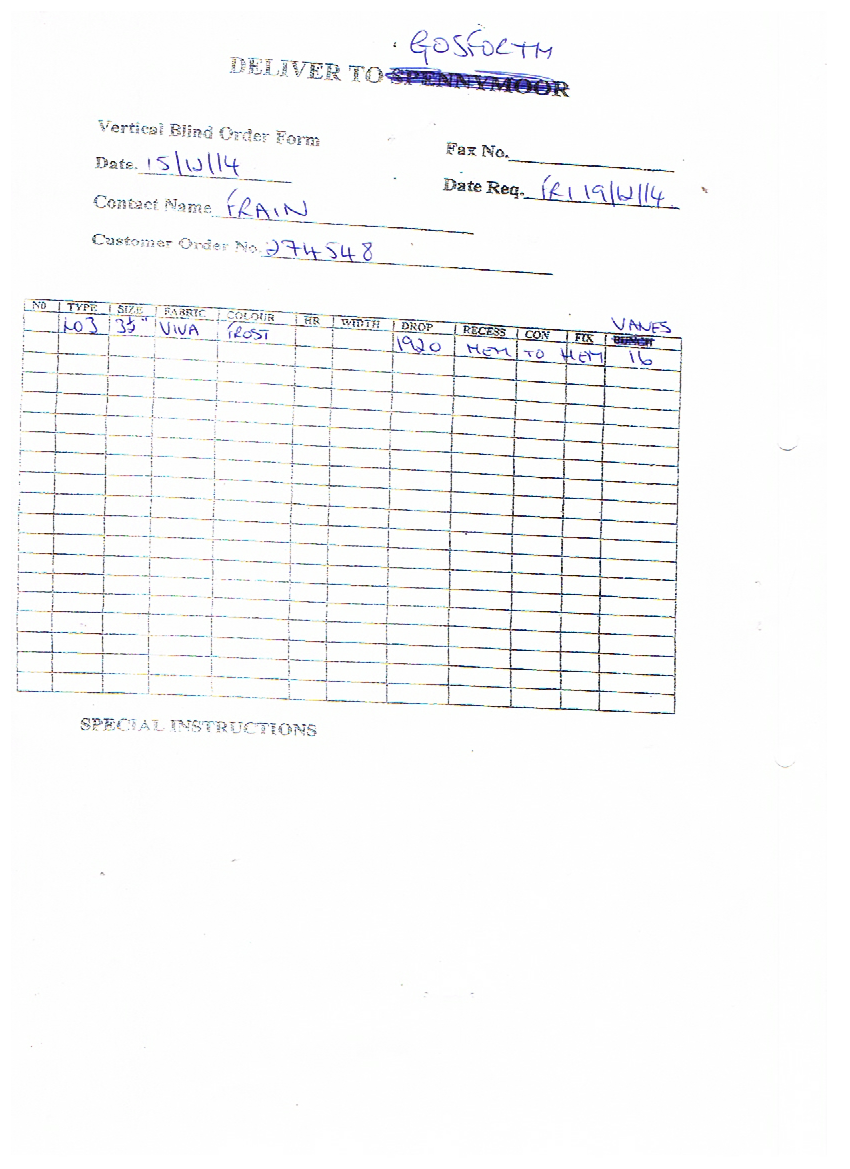 GOSFORTH
DELIVER TO SPENNYMOOR
Vertical Blind Order Form
Fax No.
Date. 15/12/14
Date Req. FRI 19/12/14
Contact Name FRAIN
Customer Order No. 274548
VANES
NO TYPE SIZE FABRIC COLOUR HR WIDTH DROP RECESS CON FIX
LO3 3½" VIVA FROST 1920 HEM TO HEM 16
SPECIAL INSTRUCTIONS